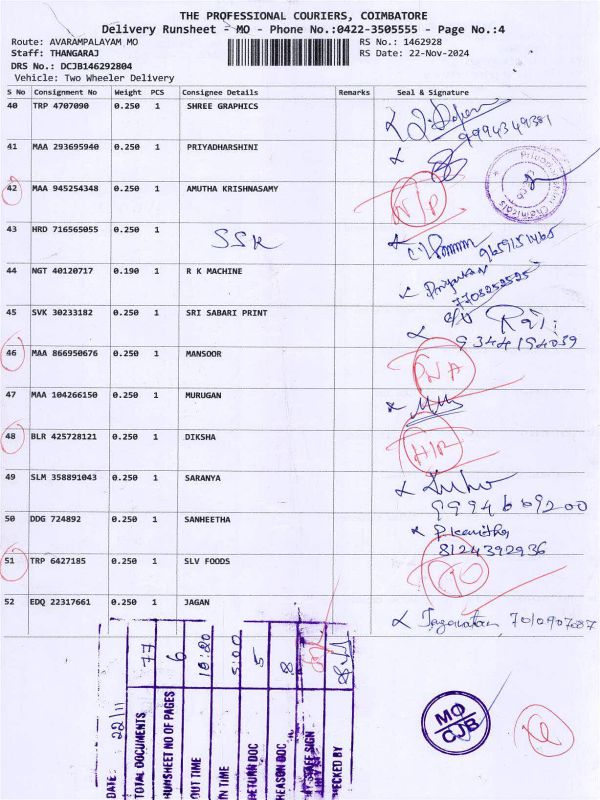 THE PROFESSIONAL COURIERS, COIMBATORE
Delivery Runsheet - MO - Phone No.:0422-3505555 - Page No.:4
Route: AVARAMPALAYAM MO RS No.: 1462928
Staff: THANGARAJ RS Date: 22-Nov-2024
DRS No.: DCJB146292804
Vehicle: Two Wheeler Delivery
S No Consignment No Weight PCS Consignee Details Remarks Seal & Signature
40 TRP 4707090 0.250 1 SHREE GRAPHICS
9994349381
41 MAA 293695940 0.250 1 PRIYADHARSHINI
42 MAA 945254348 0.250 1 AMUTHA KRISHNASAMY
43 HRD 716565055 0.250 1 SSK
44 NGT 40120717 0.190 1 R K MACHINE
Priyanka
7708252525
45 SVK 30233182 0.250 1 SRI SABARI PRINT
9344194039
46 MAA 866950676 0.250 1 MANSOOR
47 MAA 104266150 0.250 1 MURUGAN
48 BLR 425728121 0.250 1 DIKSHA
49 SLM 358891043 0.250 1 SARANYA
9994669200
50 DDG 724892 0.250 1 SANHEETHA
8124392936
51 TRP 6427185 0.250 1 SLV FOODS
52 EDQ 22317661 0.250 1 JAGAN
7010907687
DATE: 22/11
TOTAL DOCUMENTS 77
RUNSHEET NO OF PAGES 6
OUT TIME 10:20
IN TIME 5:00
RETURN DOC 5
REASON DOC 8
STAFF SIGN
CHECKED BY
MO
CJB